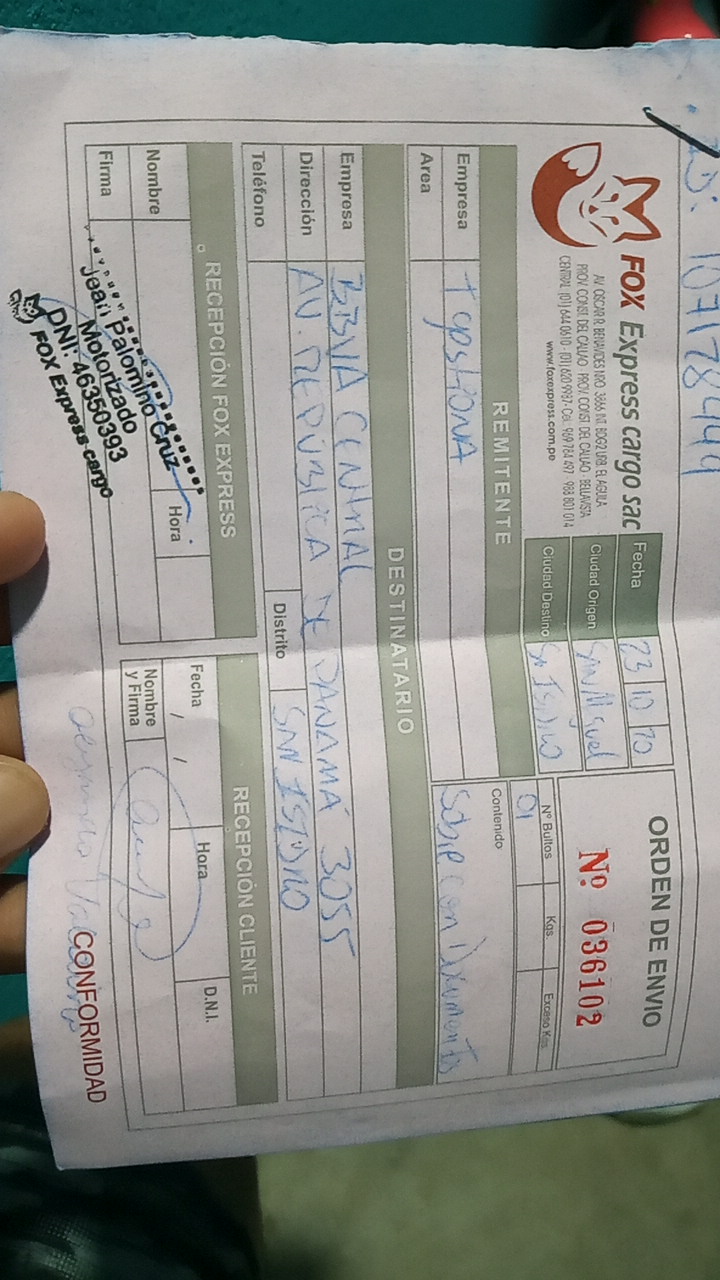 107178444
FOX Express cargo sac
AV. OSCAR R. BENAVIDES NRO. 3866 INT. BOG2 URB. EL AGUILA
PROV. CONST. DEL CALLAO - PROV. CONST. DEL CALLAO - BELLAVISTA
CENTRAL (01) 644 0610 - (01) 620 9987 - Cel.: 969 784 497 - 988 801 014
www.foxexpress.com.pe
Fecha 23 10 20
Ciudad Origen San Miguel
Ciudad Destino Sn Isidro
ORDEN DE ENVIO
Nº 036102
Nº Bultos Kgs. Exceso Kgs.
01
REMITENTE
Empresa Tgestiona
Area
Contenido
Sobre con Documentos
DESTINATARIO
Empresa BBVA CENTRAL
Dirección AV. REPÚBLICA DE PANAMÁ 3055
Teléfono
Distrito SAN ISIDRO
RECEPCIÓN FOX EXPRESS
Nombre
Hora
Firma
Jean Palomino Cruz
Motorizado
DNI: 46350393
FOX Express cargo
RECEPCIÓN CLIENTE
Fecha / / Hora D.N.I.
Nombre
y Firma
CONFORMIDAD